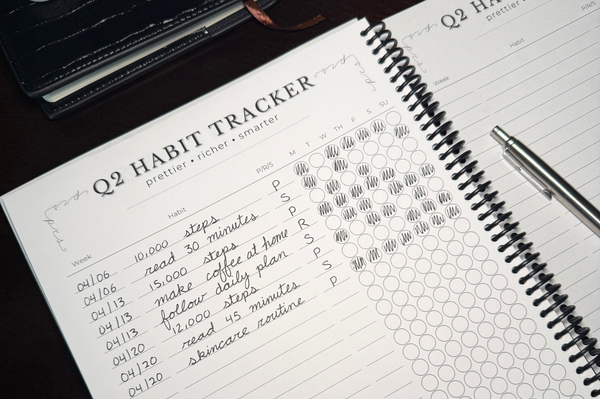 Q2 HABIT TRACKER
prettier • richer • smarter
Week Habit P/R/S M T W TH F S SU
04/06 10,000 steps P
04/06 read 30 minutes S
04/13 15,000 steps P
04/13 make coffee at home R
follow daily plan S
04/20 12,000 steps P
04/20 read 45 minutes S
04/20 skincare routine P
Q2 HA
prettier
Week Habit P/R/S